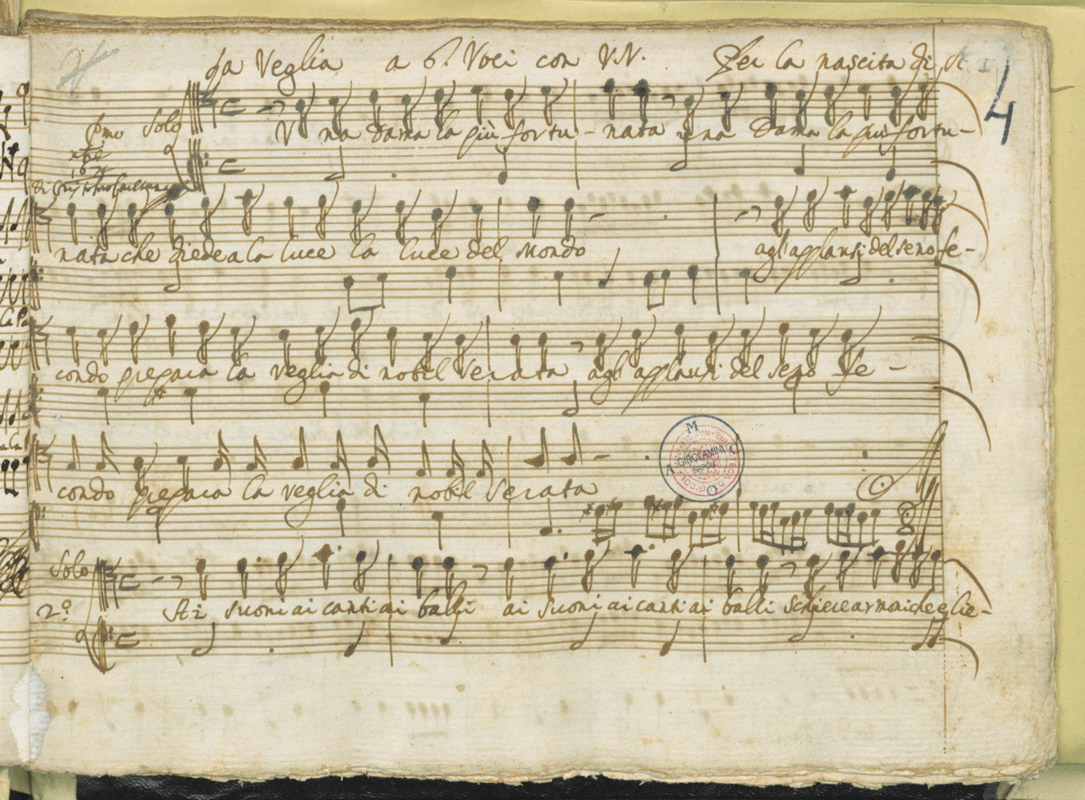 La Veglia a 6. Voci con V.V. Per la nascita di
4
Pmo Solo
V na dama la più fortu - nata una Dama la piu fortu -
nata che diede a la luce la luce del mondo agl'applausi del seno fe -
condo prepara la veglia di nobil serata agl'applausi del seno fe -
condo prepara la veglia di nobil serata
Solo
2.º Ai suoni ai canti ai balli ai suoni ai canti ai balli schiere armoniche